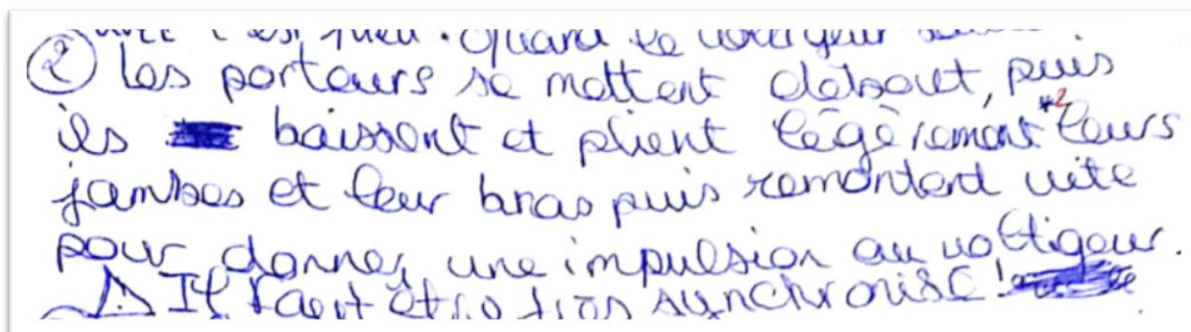 c'est . Quand le voltigeur
② Les porteurs se mettent debout, puis
ils baissent et plient légèrement *2 leurs
jambes et leur bras puis remontent vite
pour donner une impulsion au voltigeur.
⚠ Il faut être très synchronisé !